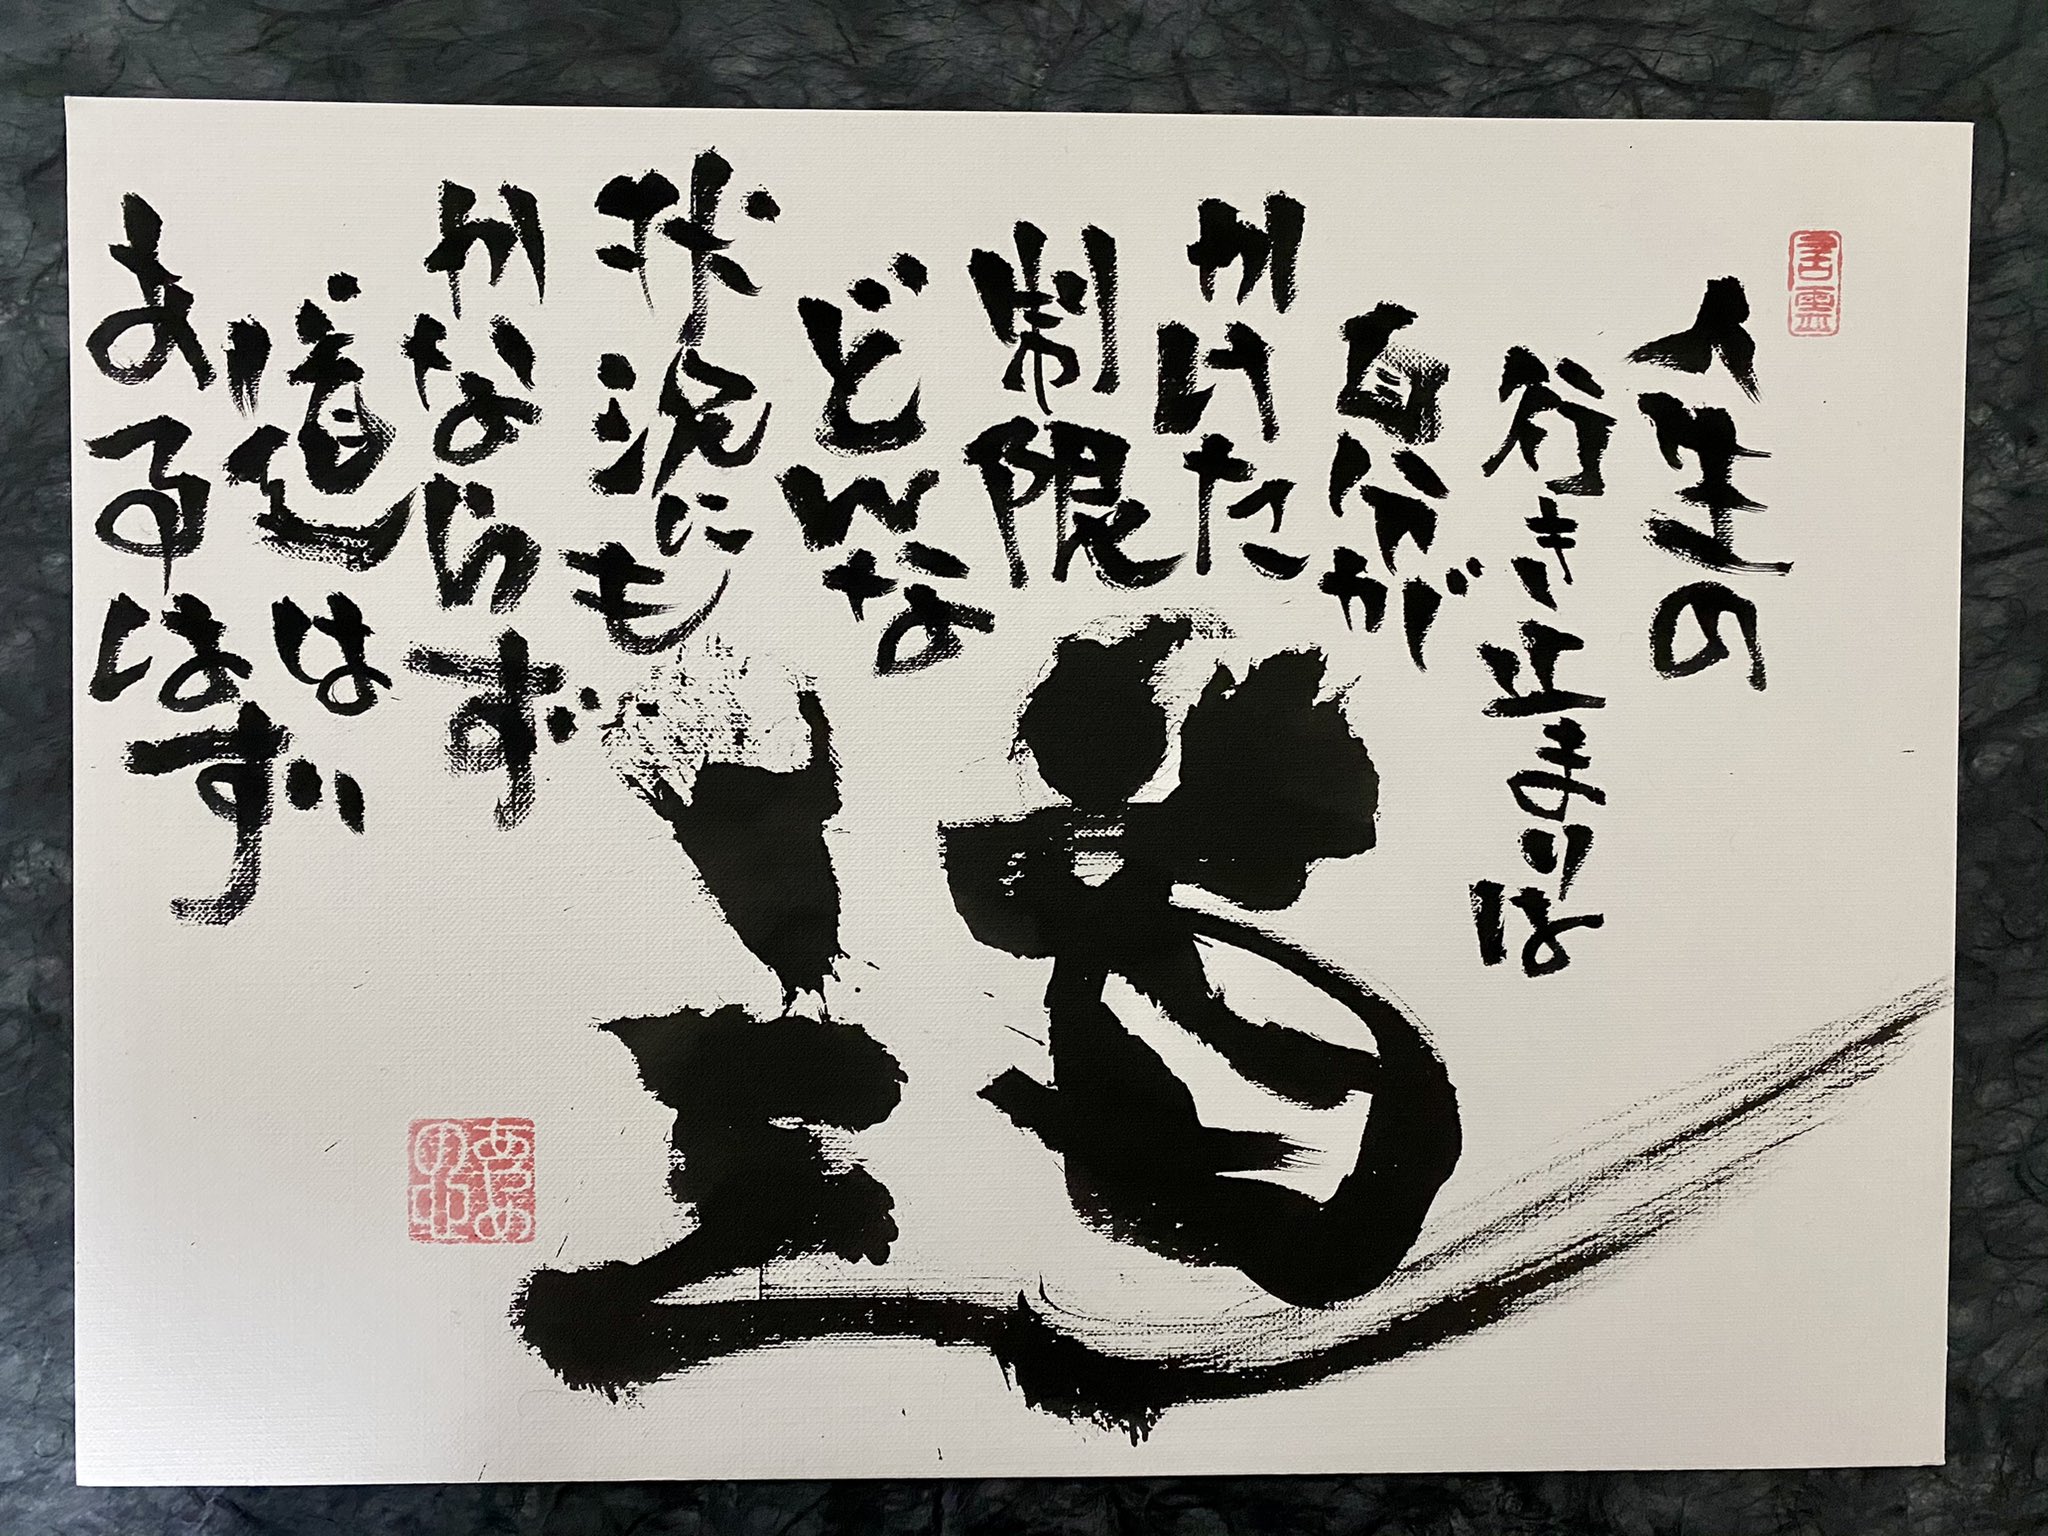 人生の
行き止まりは
自分が
かけた
制限
どんな
状況にも
かならず
道は
あるはず
道
言霊